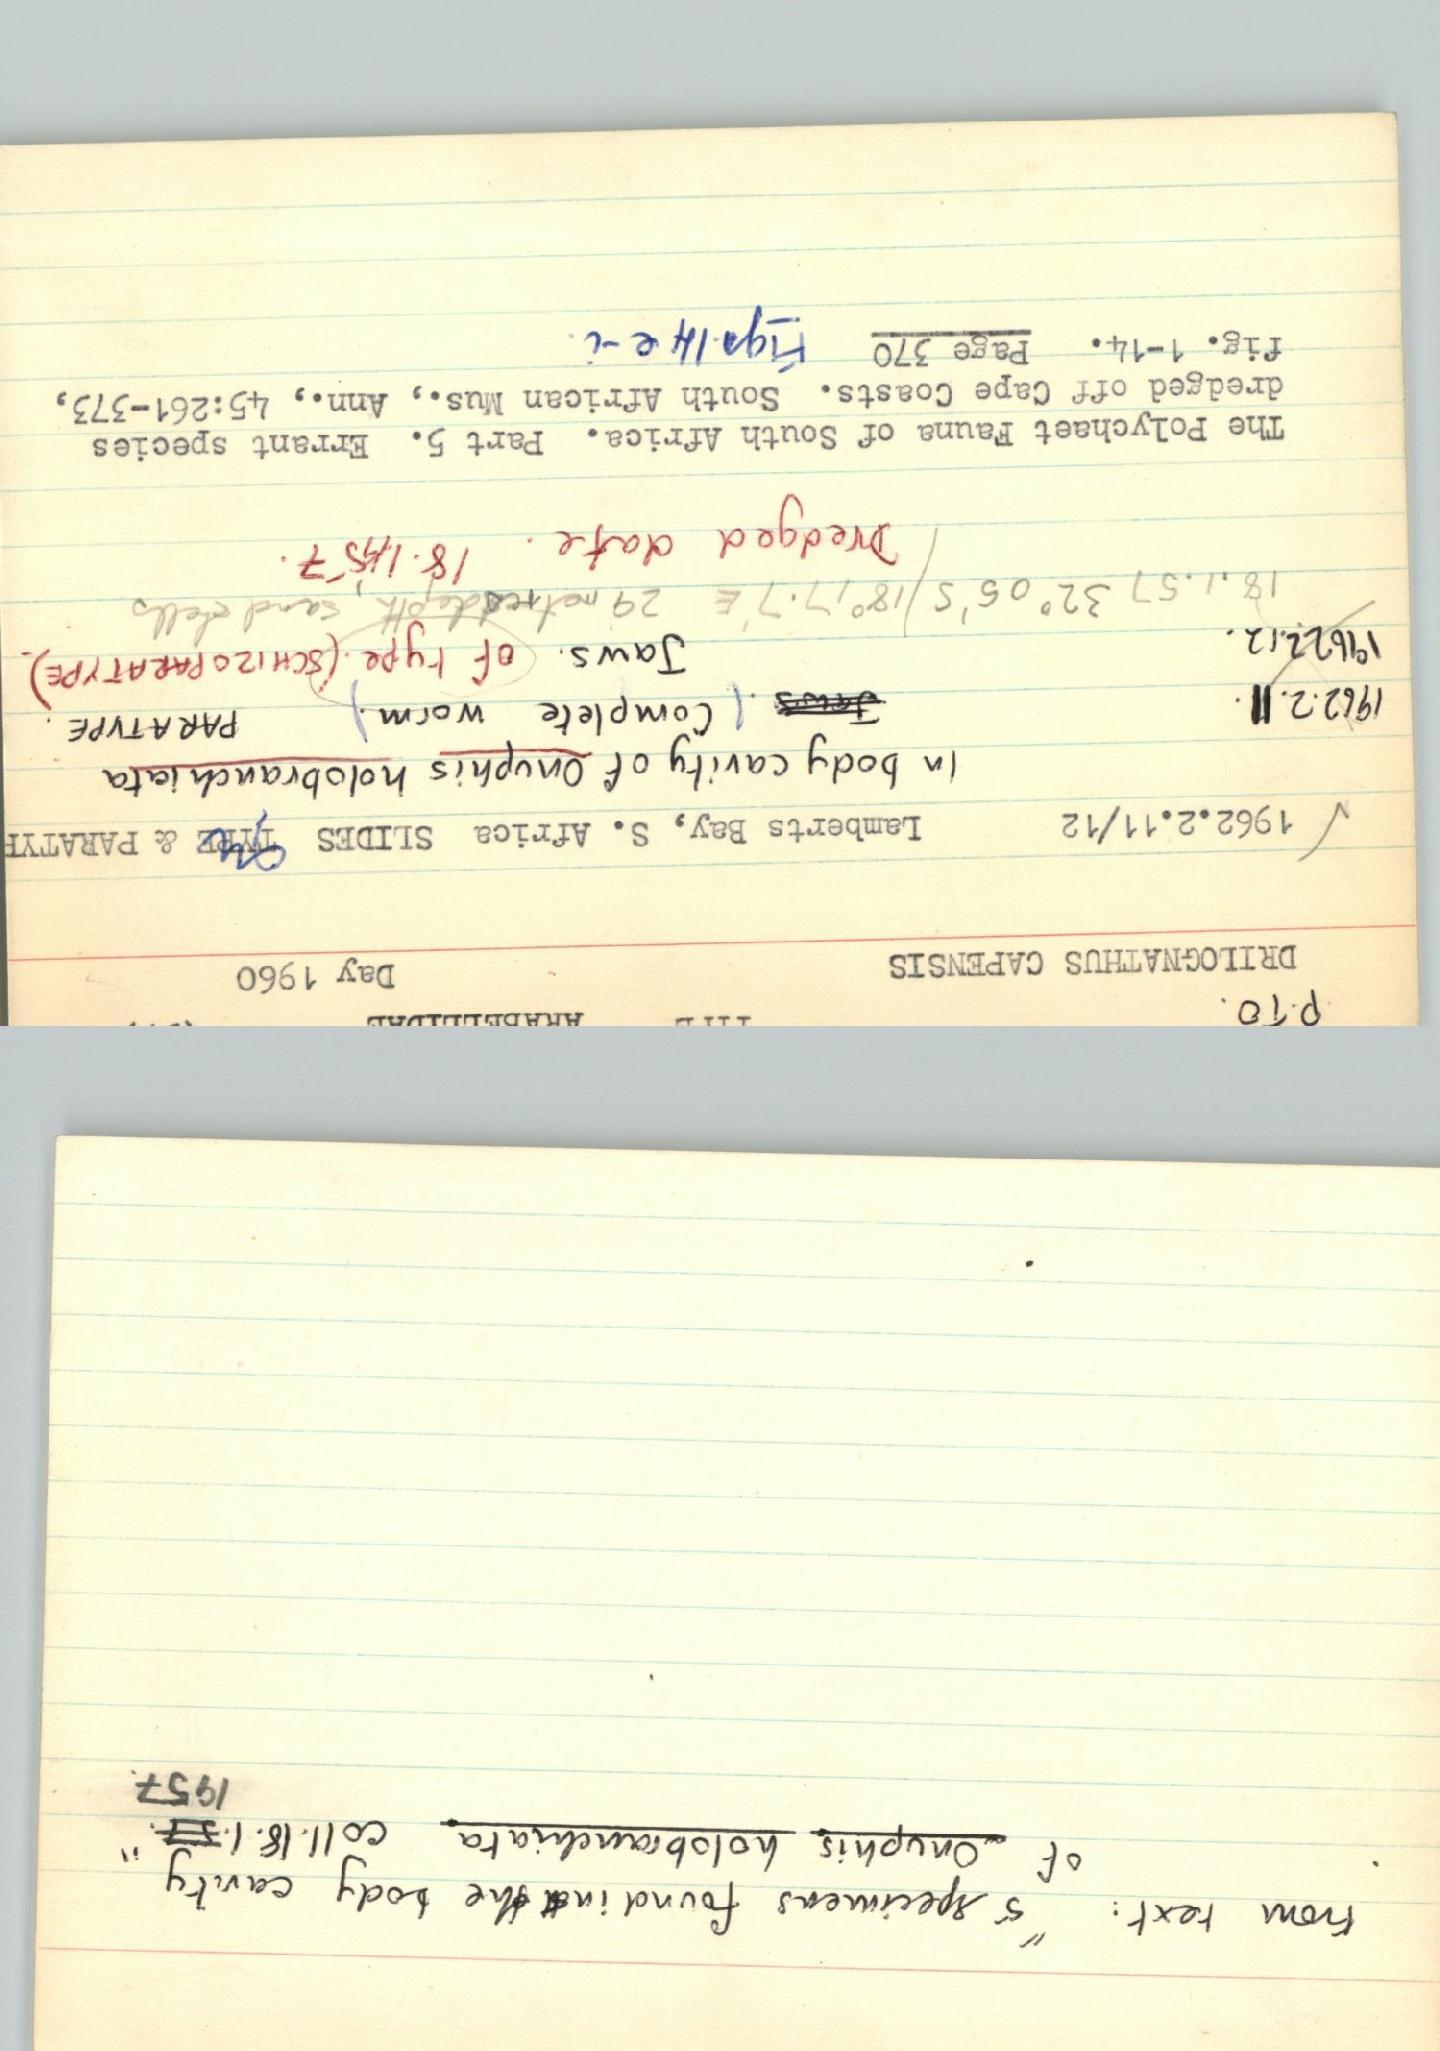 P.T.O.
ARABELLIDAE
DRILOGNATHUS CAPENSIS Day 1960
1962.2.11/12 Lamberts Bay, S. Africa SLIDES TYPE & PARATYP
In body cavity of Onuphis holobranchiata
1962.2.11. Jaws (Complete worm.) PARATYPE.
1962.2.12. Jaws. of type. (SCHIZOPARATYPE).
18.1.57 32° 05'S/18°,17.7'E 29 metres depth, sand shells
Dredged date. 18.1.1957.
The Polychaet Fauna of South Africa. Part 5. Errant species
dredged off Cape Coasts. South African Mus., Ann., 45:261-373,
fig. 1-14. Page 370 Figs.14 e-i.
From text: "5 specimens found in the body cavity
of Onuphis holobranchiata coll. 18.1.57."
1957.